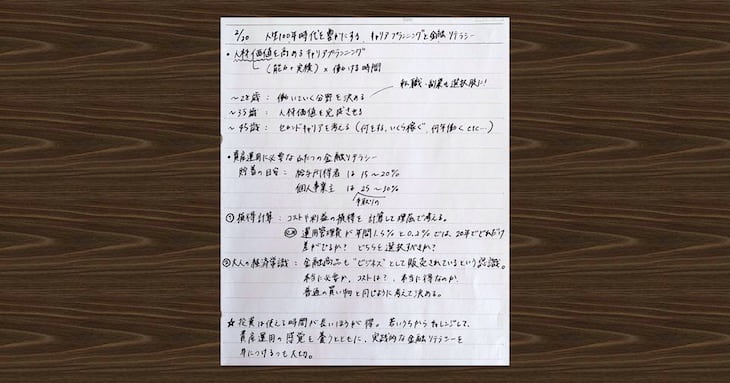 2/20 人生100年時代を豊かにする キャリアプランニングと金融リテラシー
・人材価値を高めるキャリアプランニング
(能力+実績)×働ける時間
転職・副業も選択肢に!
~28歳: 働いていく分野を決める
~35歳: 人材価値を完成させる
~45歳: セカンドキャリアを考える(何をする、いくら稼ぐ、何年働く etc…)
・資産運用に必要なふたつの金融リテラシー
貯蓄の目安: 給与所得者 は 15~20%
個人事業主 は 25~30%
手取りの
①損得計算: コストや利益の損得を計算して理屈で考える。
運用管理費が年間1.5%と0.2%では、20年でどれだけ
差がでるか? どちらを選択すべきか?
②大人の経済常識: 金融商品も"ビジネス"として販売されているという認識。
本当に必要か、コストは?、本当に得なのか、
普通の買い物と同じように考えて決める。
☆投資は使える時間が長いほうが得。若いうちからチャレンジして、
資産運用の感覚を養うとともに、実践的な金融リテラシーを
身につけるのも大切。